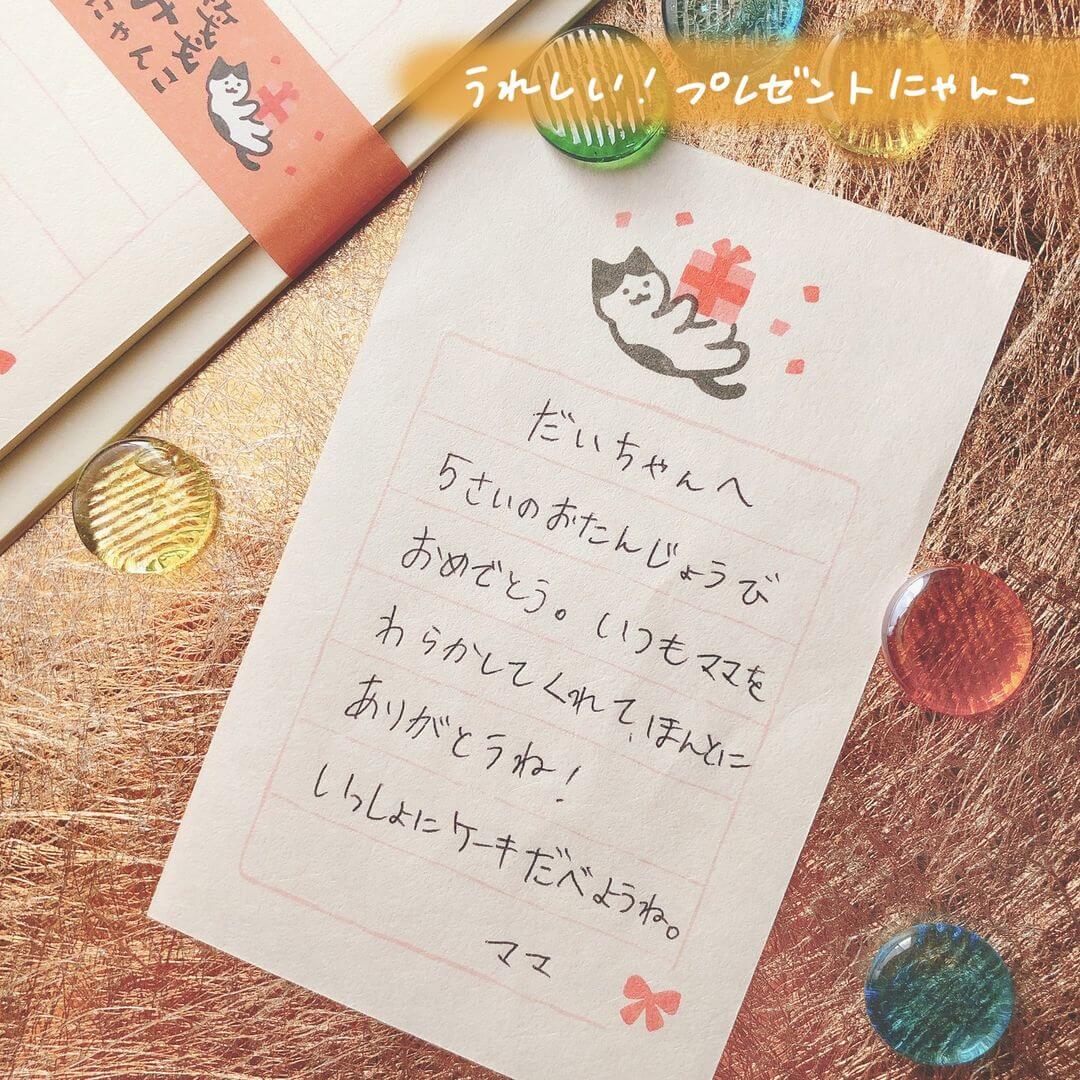 うれしい!プレゼントにゃんこ
にゃんこ
だいちゃんへ
5さいのおたんじょうび
おめでとう。いつもママを
わらかしてくれて、ほんとに
ありがとうね!
いっしょにケーキだべようね。
ママ